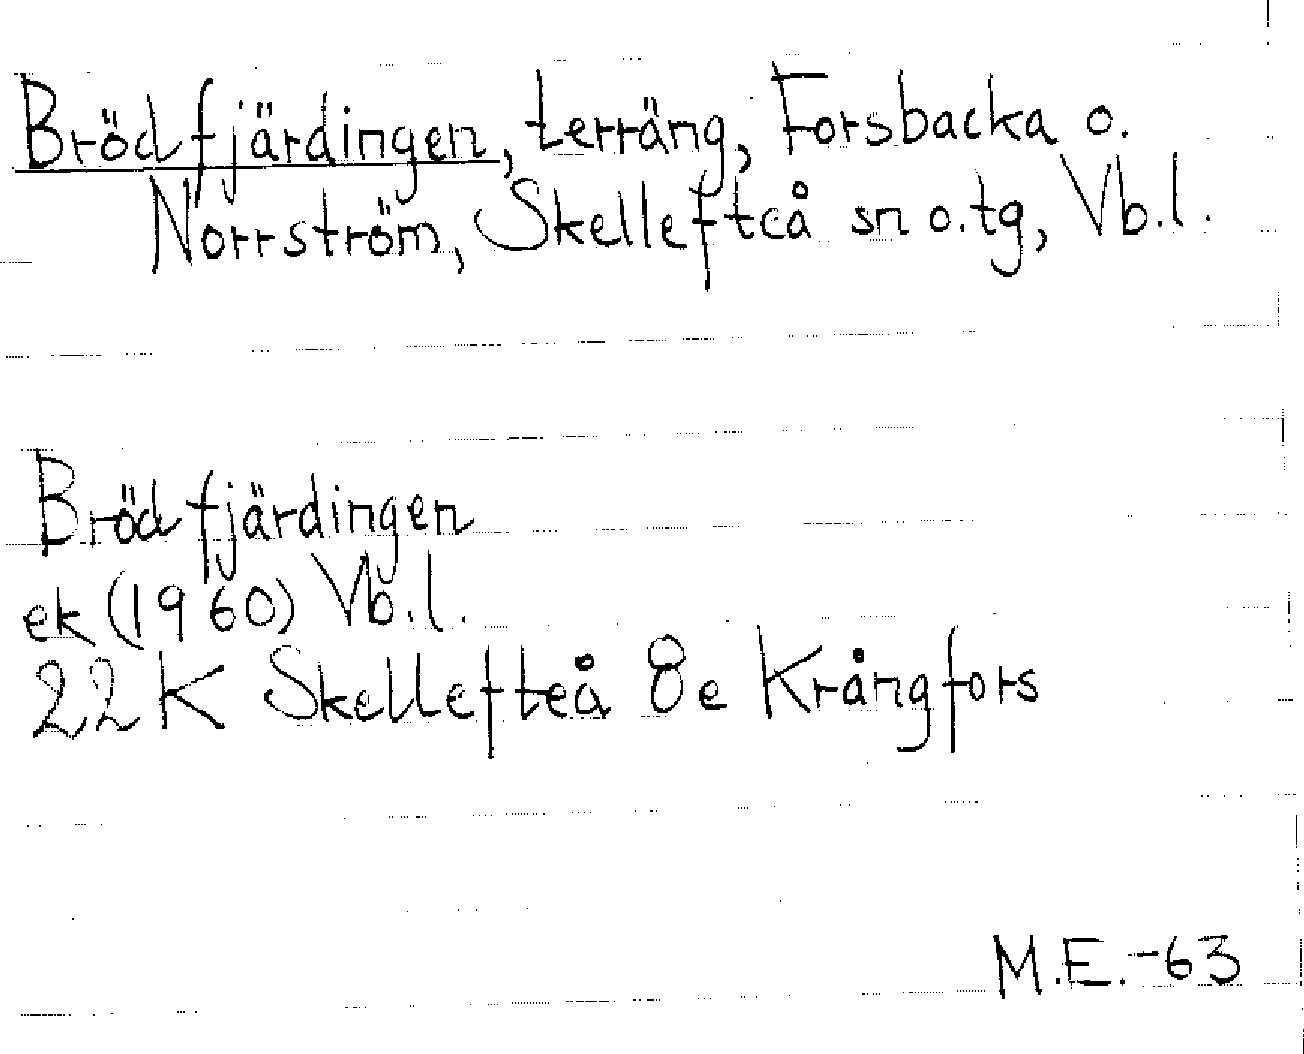 Brödfjärdingen, terräng, Forsbacka o.
Norrström, Skellefteå sn o. tg, Vb.l.
Brödfjärdingen
ek (1960) Vb.l.
22K Skellefteå 8e Krångfors
M.E.-63